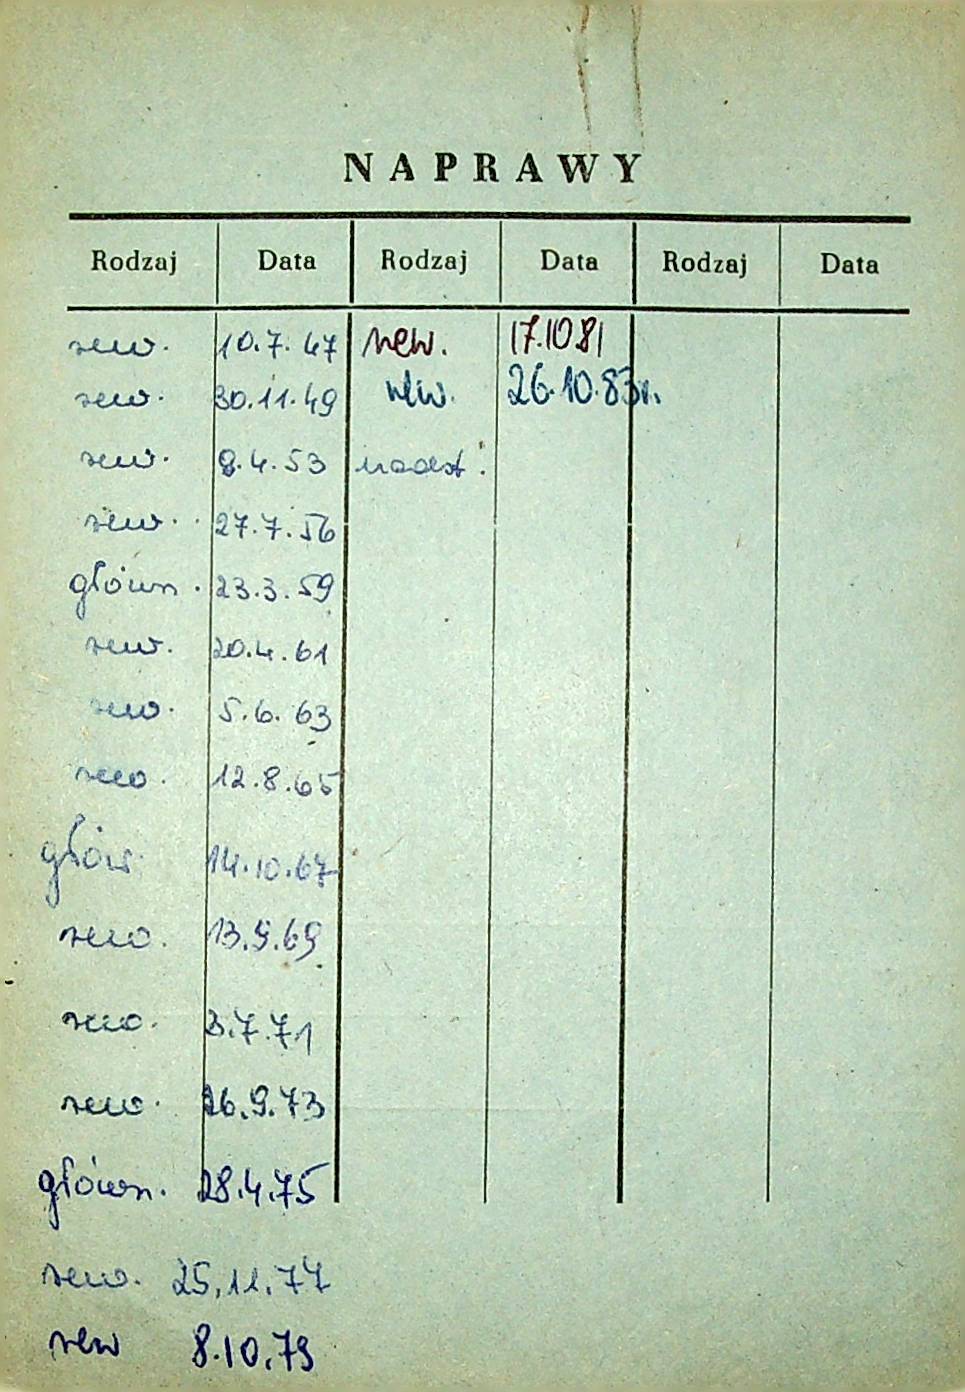 NAPRAWY
Rodzaj Data Rodzaj Data Rodzaj Data
rew. 10.7.47 rew. 17.10 81
rew. 30.11.49 rew. 26.10.83r.
rew. 9.4.53
rew. 27.7.56
główn. 23.3.59
rew. 20.4.61
rew. 5.6.63
rew. 12.8.65
głów 14.10.67
rew. 13.9.69
rew. 3.7.71
rew. 26.9.73
główn. 28.4.75
rew. 25.11.77
rew 8.10.79